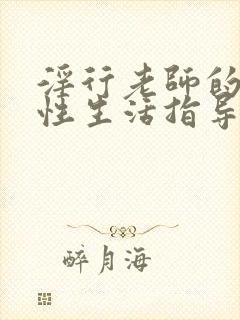 淫行老師的
性生活指导
醉月海